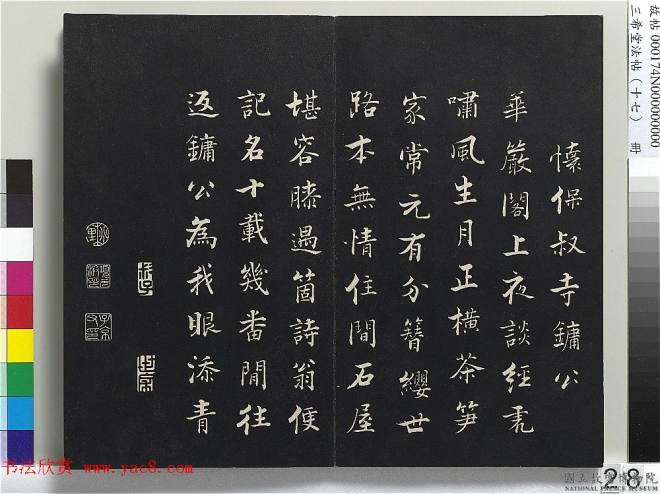 故帖 000174N000000000
三希堂法帖(十七) 冊
懷保叔寺鏞公
華嚴閣上夜談經虎
嘯風生月正橫茶笋
家常元有分簪纓世
路本無情住間石屋
堪容膝遇箇詩翁便
記名十載幾番閒往
返鏞公為我眼添青
书法欣赏 www.yac8.com
28
國立故宮博物院
NATIONAL PALACE MUSEUM